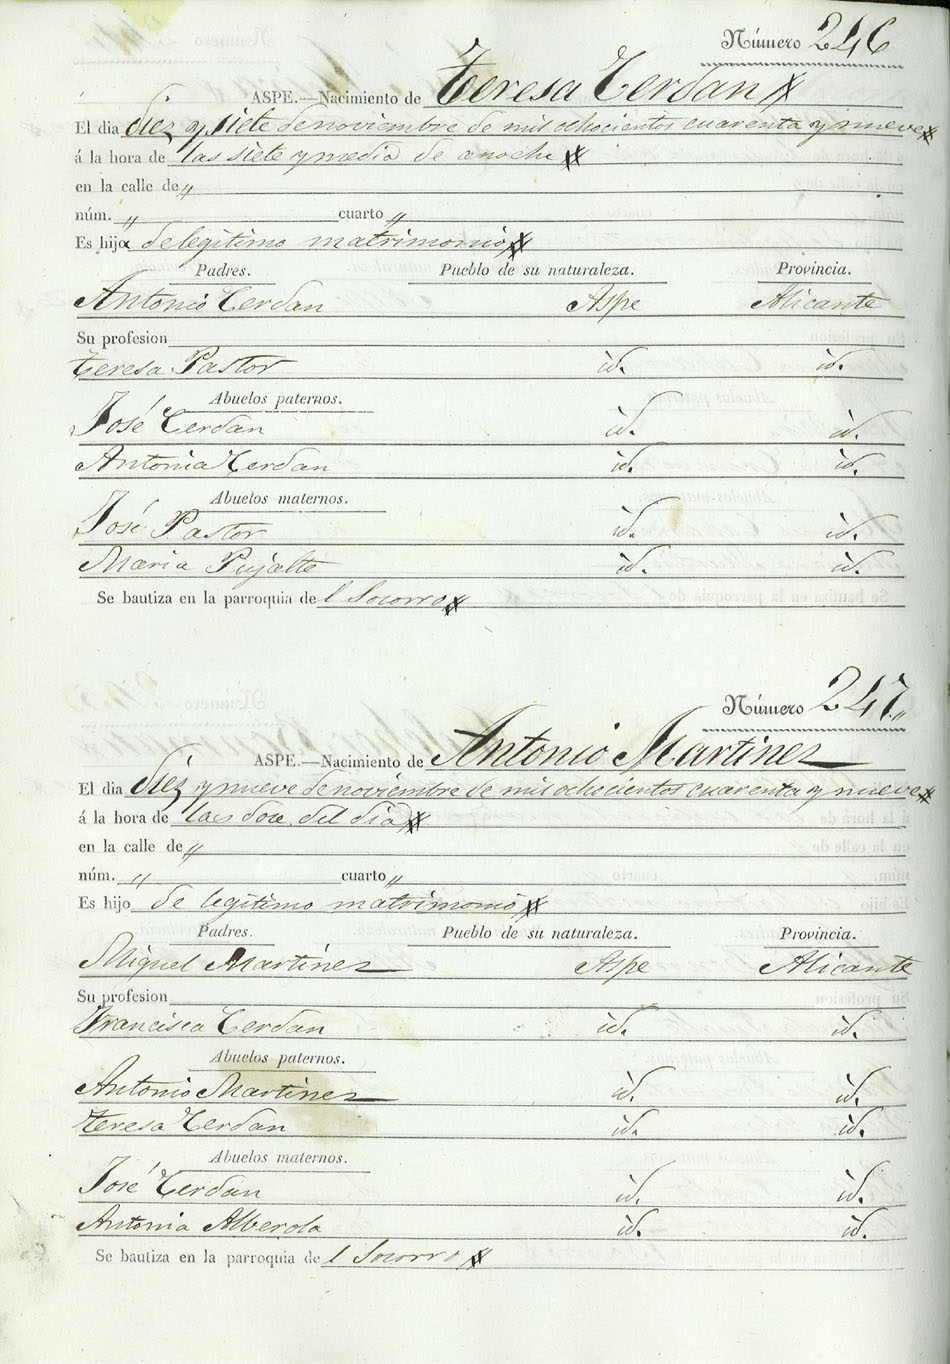 Número 246
ASPE.—Nacimiento de Teresa Cerdan
El dia diez y siete de noviembre de mil ochocientos cuarenta y nueve
á la hora de las siete y media de anoche
en la calle de "
núm. " cuarto "
Es hija de legitimo matrimonio
Padres. Pueblo de su naturaleza. Provincia.
Antonio Cerdan Aspe Alicante
Su profesion
Teresa Pastor id. id.
Abuelos paternos.
José Cerdan id. id.
Antonia Cerdan id. id.
Abuelos maternos.
José Pastor id. id.
Maria Pujalte id. id.
Se bautiza en la parroquia de l Socorro
Número 247 "
ASPE.—Nacimiento de Antonio Martinez
El dia diez y nueve de noviembre de mil ochocientos cuarenta y nueve
á la hora de las doce del dia
en la calle de "
núm. " cuarto "
Es hijo de legitimo matrimonio
Padres. Pueblo de su naturaleza. Provincia.
Miguel Martinez Aspe Alicante
Su profesion
Francisca Cerdan id. id.
Abuelos paternos.
Antonio Martinez id. id.
Teresa Cerdan id. id.
Abuelos maternos.
José Cerdan id. id.
Antonia Alberola id. id.
Se bautiza en la parroquia de l Socorro